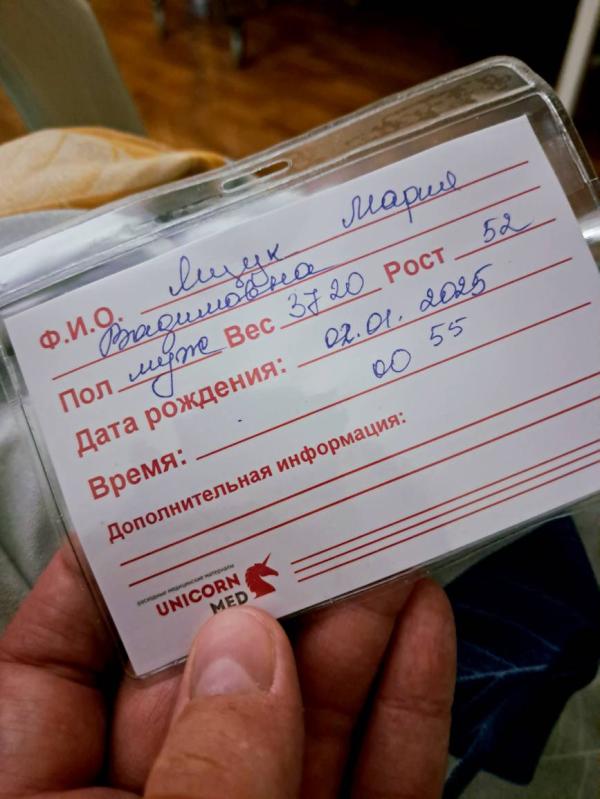 Ф.И.О. Ящук Мария
Вадимовна
Пол муж Вес 3720 Рост 52
Дата рождения: 02.01.2025
Время: 00 55
Дополнительная информация:
расходные медицинские материалы
UNICORN
MED